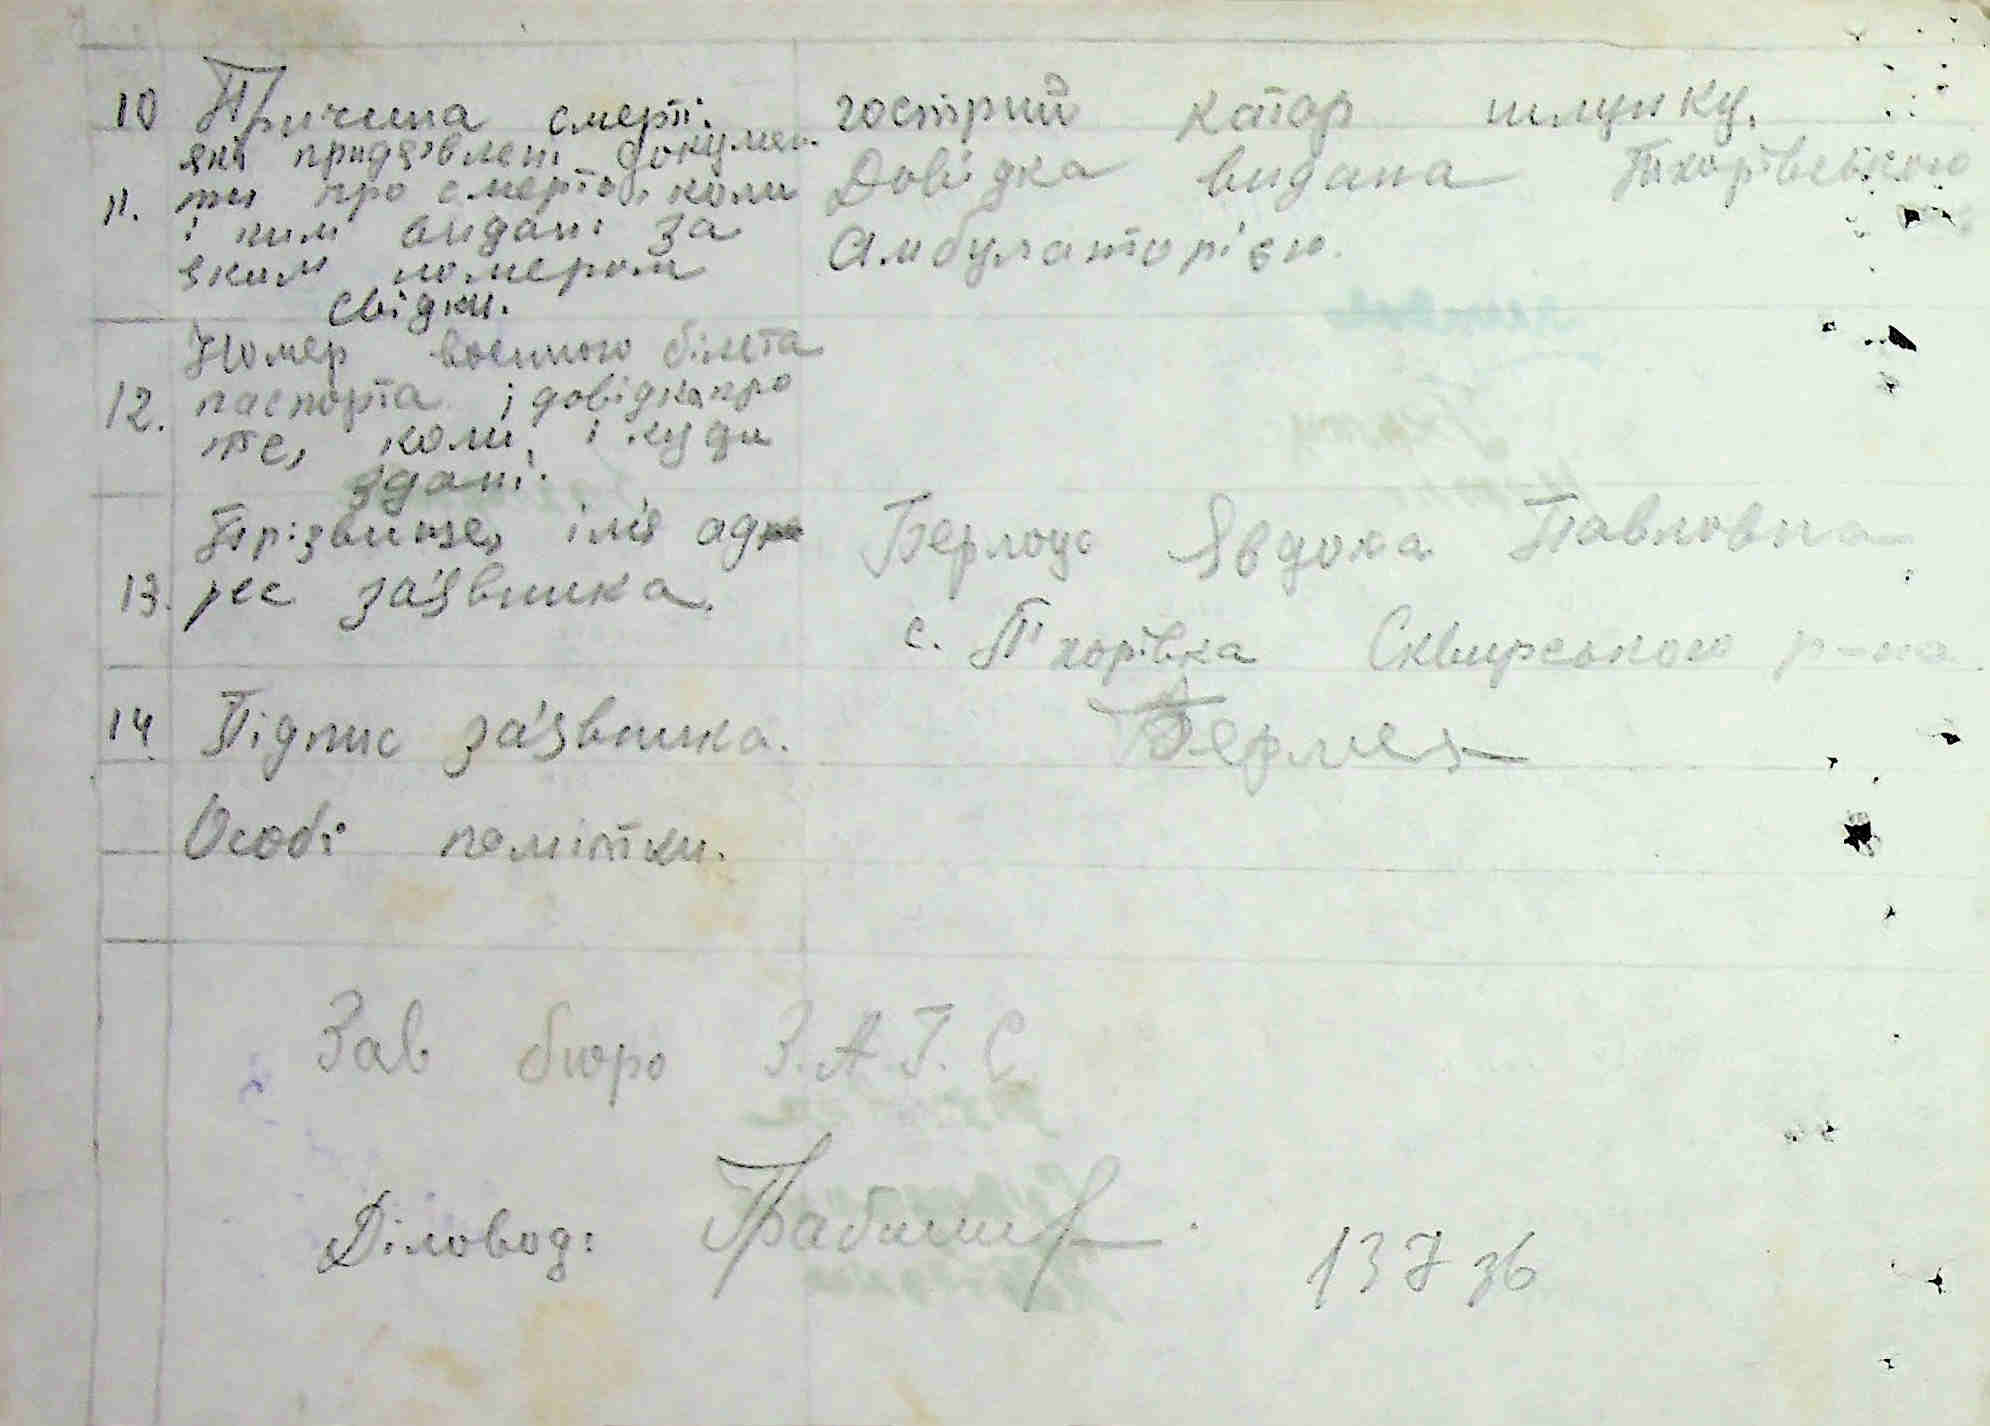 10 Причина смерті. гострий катар шлунку.
які пред'явлені докумен-
11. ти про смерть, коли Довідка видана Тхорівською
і ким видані за Амбулаторією.
яким номером
свідки.
Номер воєнного білета
12. паспорта і довідка про
те, коли, і куди
здані.
Прізвище, ім'я ад Берлоус Явдоха Павловна
13. рес заявника.
с. Тхорівка Сквирського р-на
14 Підпис заявника.
Особі помітки.
Зав бюро З.А.Г.С.
Діловод:
137 зв